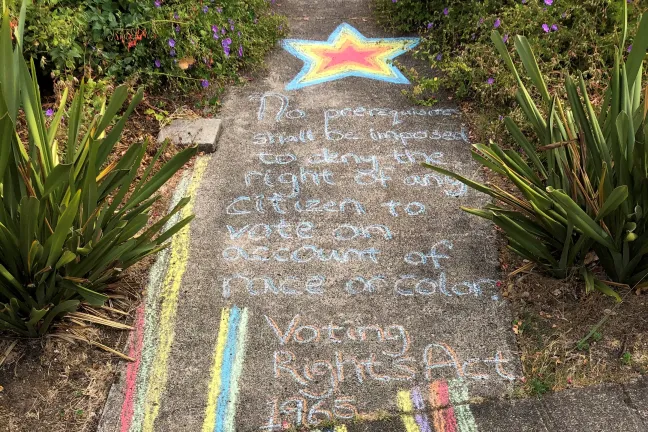 No prerequisite
shall be imposed
to deny the
right of any
citizen to
vote on
account of
race or color.
Voting
Rights Act
1965